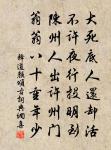 大死底人還却活
不許夜行投明到
陳州人出許州門
翁翁八十重年少
釋道顏頌古詞典網集